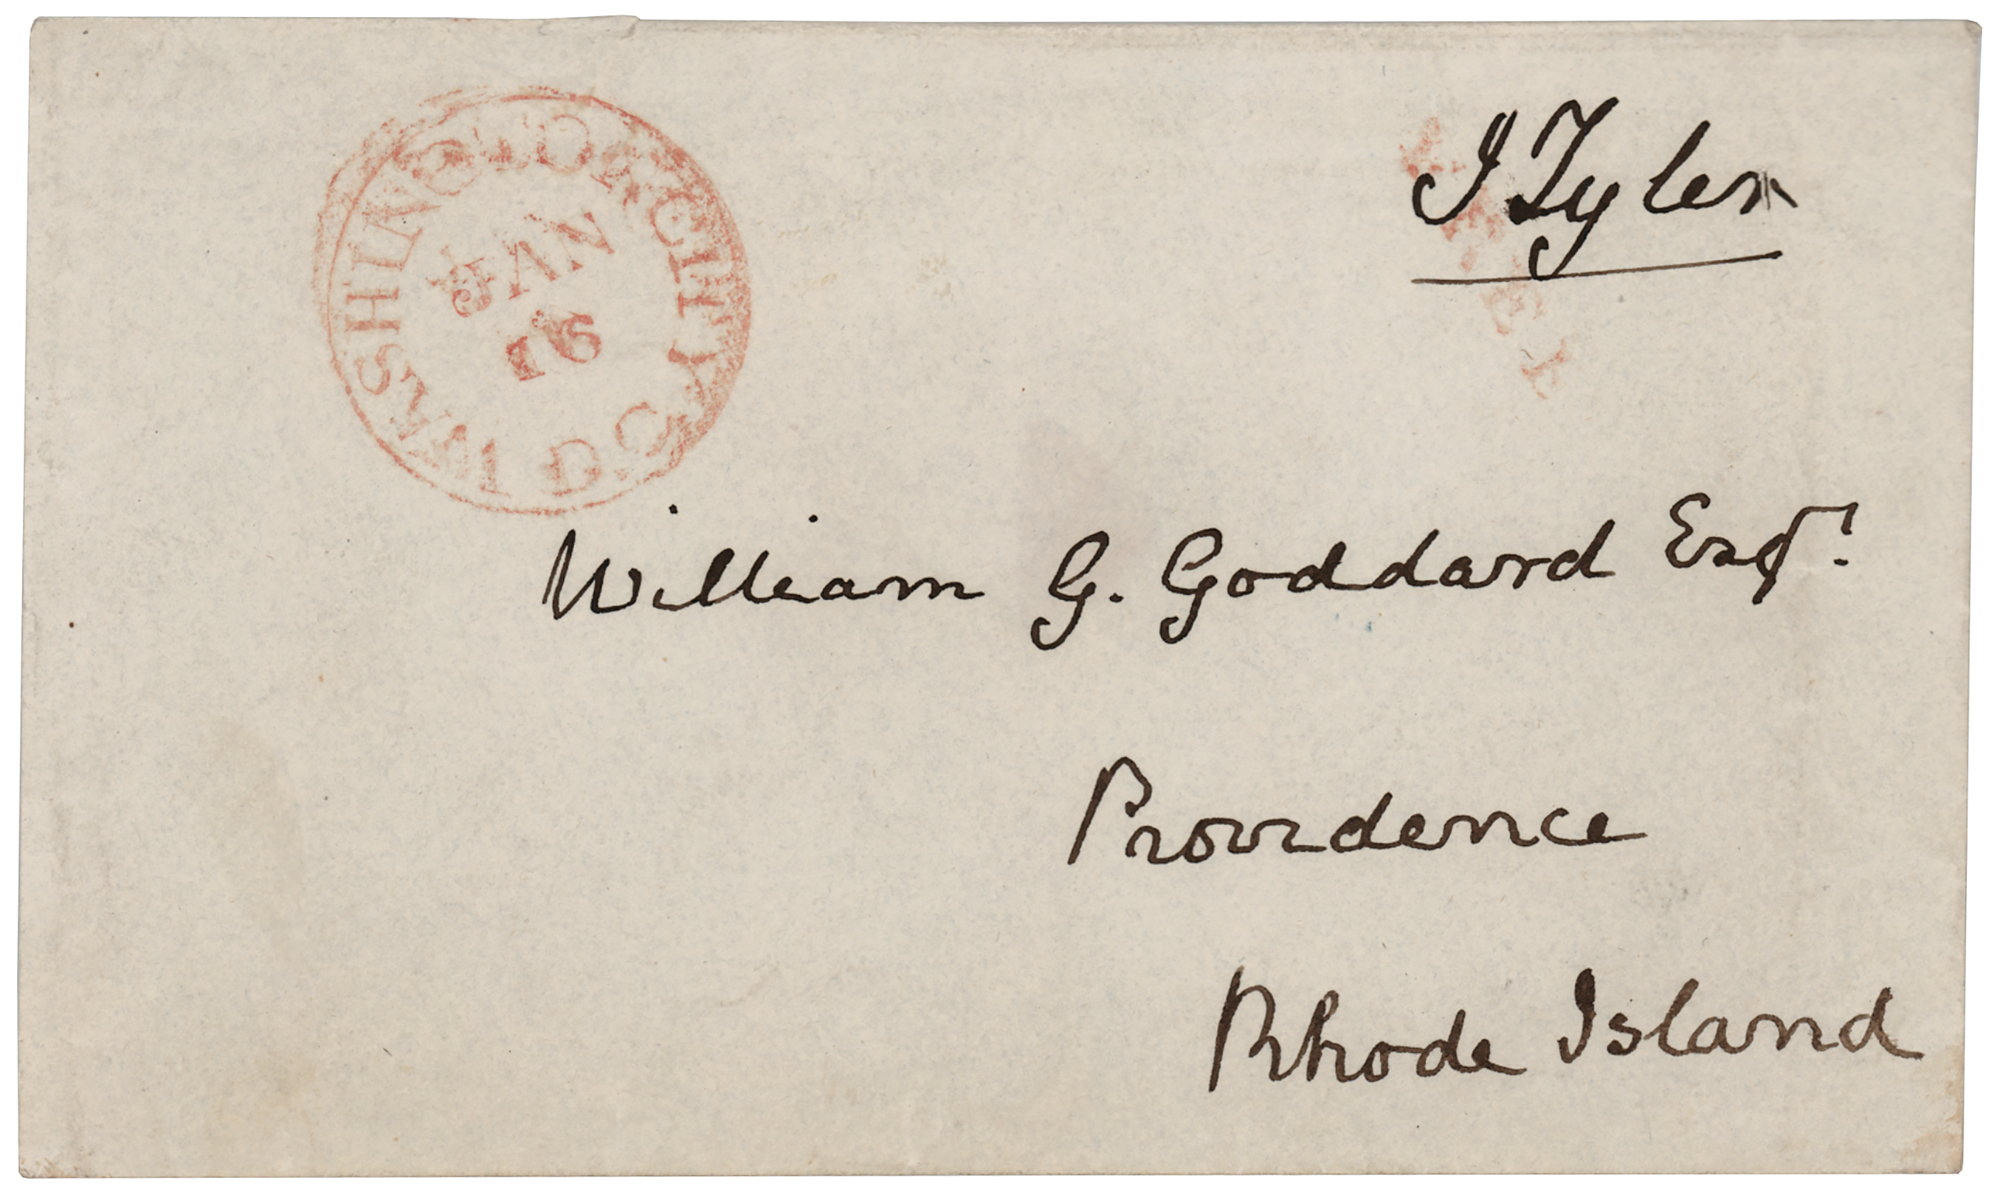 WASHINGTON CITY D.C.
JAN
16
J Tyler
William G. Goddard Esqr.
Providence
Rhode Island